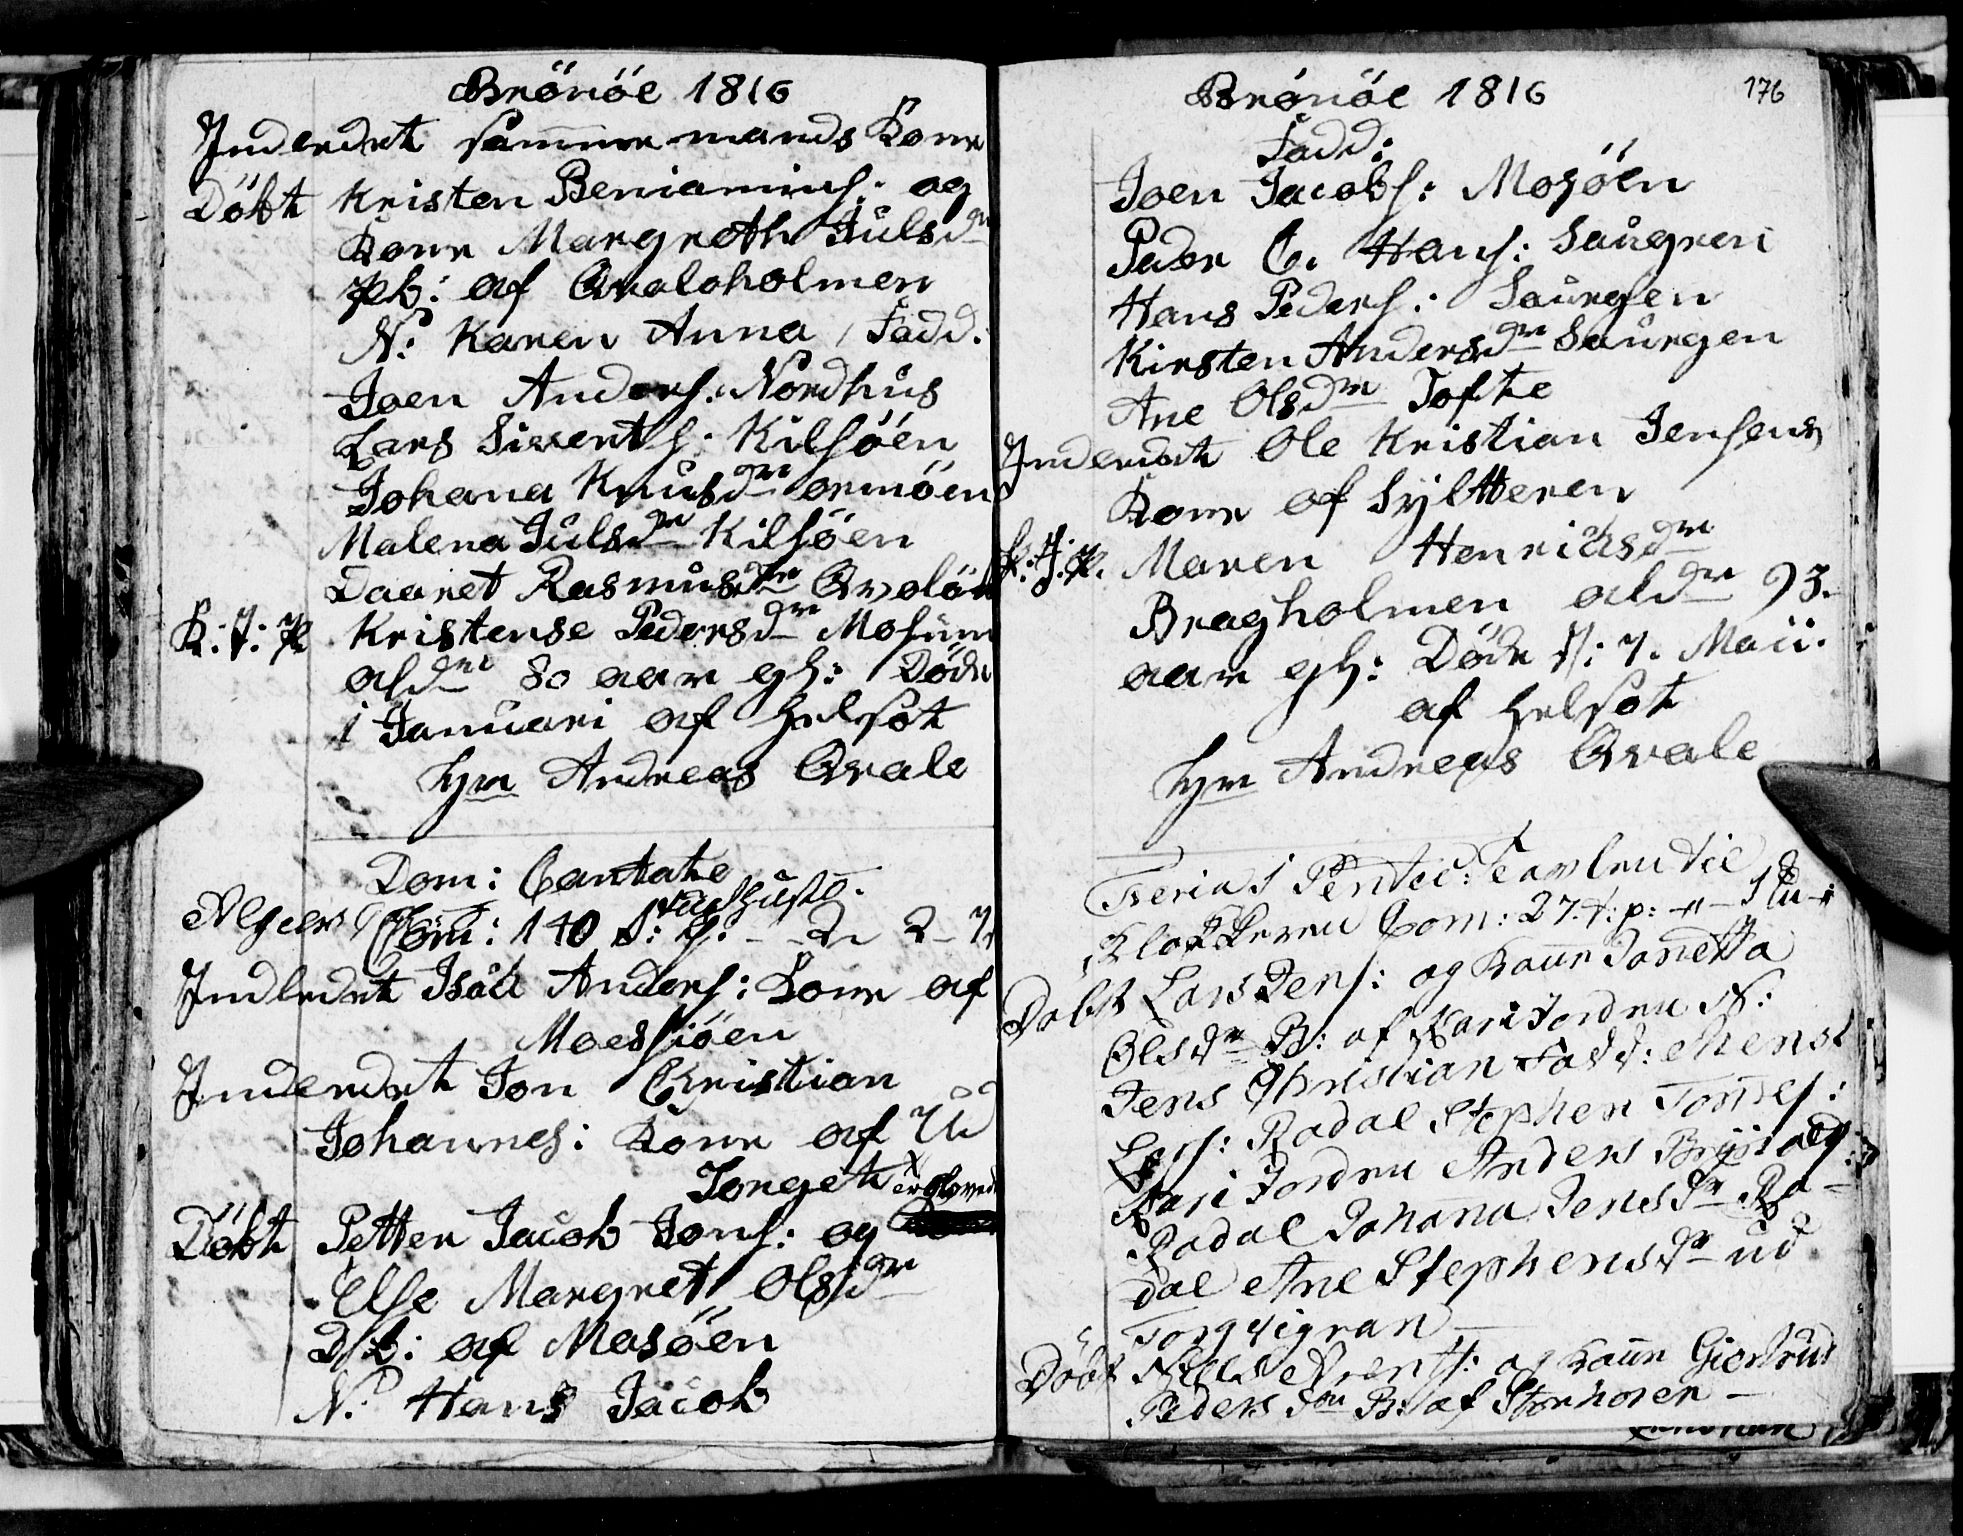 Brönöe 1816
Indledet samme mands Kone
Döbt Kristen Beniamins: og
Kone Margreth Juls dr
Pb: af Qvaloholmen
N: Karen Anna / Fadd:
Joen Anders: Nordhus
Lars Siverts: Kilsöen
Johana Knus dr ormöen
Malena Juls dr Kilsöen
Daaret Rasmus dr
K: J: P Kristense Peders dr
al dr 80 aar gl: Döde
i Januari af Helsot
Hr Andreas Qvale
Dom: Cantate
Com: 140 S: H. - - 2 - 7
Indledet Isak Anders: Kone af
Moessiöen
Indledet Jon Christian
Johannes: Kone af Ud
Torget
Döbt Petter Jacob Jons: og
Else Margret Ols dr
af Masöen
N: Hans Jacob
Brönöe 1816 176
Fadd:
Joen Jacobs: Mosöen
Peder C. Hans: Saugren
Hans Peders: Saurgen
Kirsten Anders dr Saurgen
Ane Ols dr Tofte
Indledet Ole Kristian Jensens
Kone af Sylteren
K: J: P. Maren Henrichs dr
Bragholmen al dr 93
aar gl: Döde d: 7. Maii.
af Helsot
Hr Andreas Qvale
Feria 1 Pentec:
Klokkeren Com: 27
Döbt Lars Jens: og Kone Janetta
Ols dr B: af N:
Jens Christian Fadd: Mens
Lars: Rodal Stephen Tomes:
Anders
Rodal Johana Jens dr Ro-
dal Ane Stephens dr ud
Torge
Döbt Niels Arents: og Kone Giertrud
Peders dr B: af Storhoren